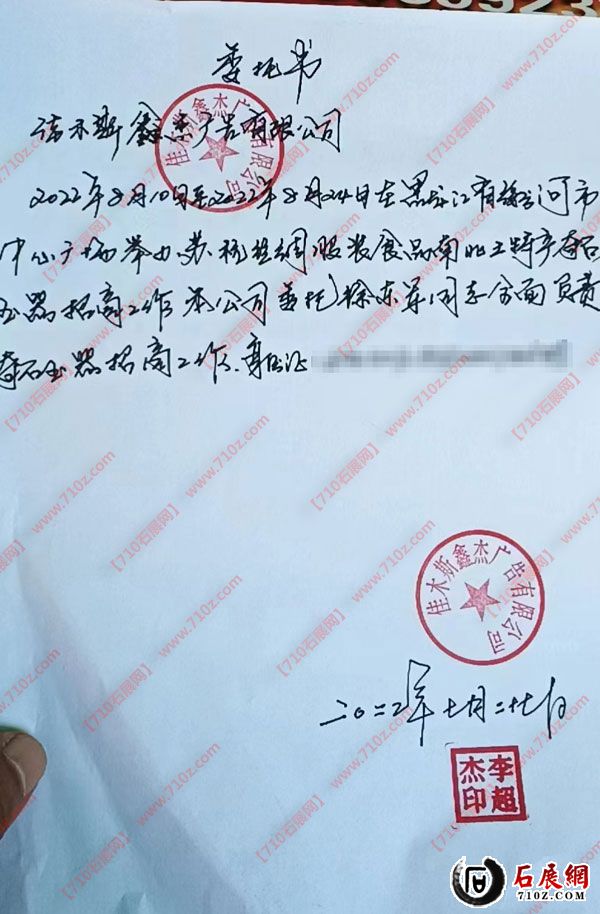 委托书
佳木斯鑫杰广告有限公司
2022年8月10日至2022年8月24日在黑龙江省
河市
中心广场举办苏杭丝绸服装食品南北土特产奇石
玉器招商工作本公司委托徐东军同志全面负责
奇石玉器招商工作.身份证
佳木斯鑫杰广告有限公司
佳木斯鑫杰广告有限公司
二〇二二年七月二十七日
李超
杰印
【710石展网】www.710z.com
石展網
710Z.COM